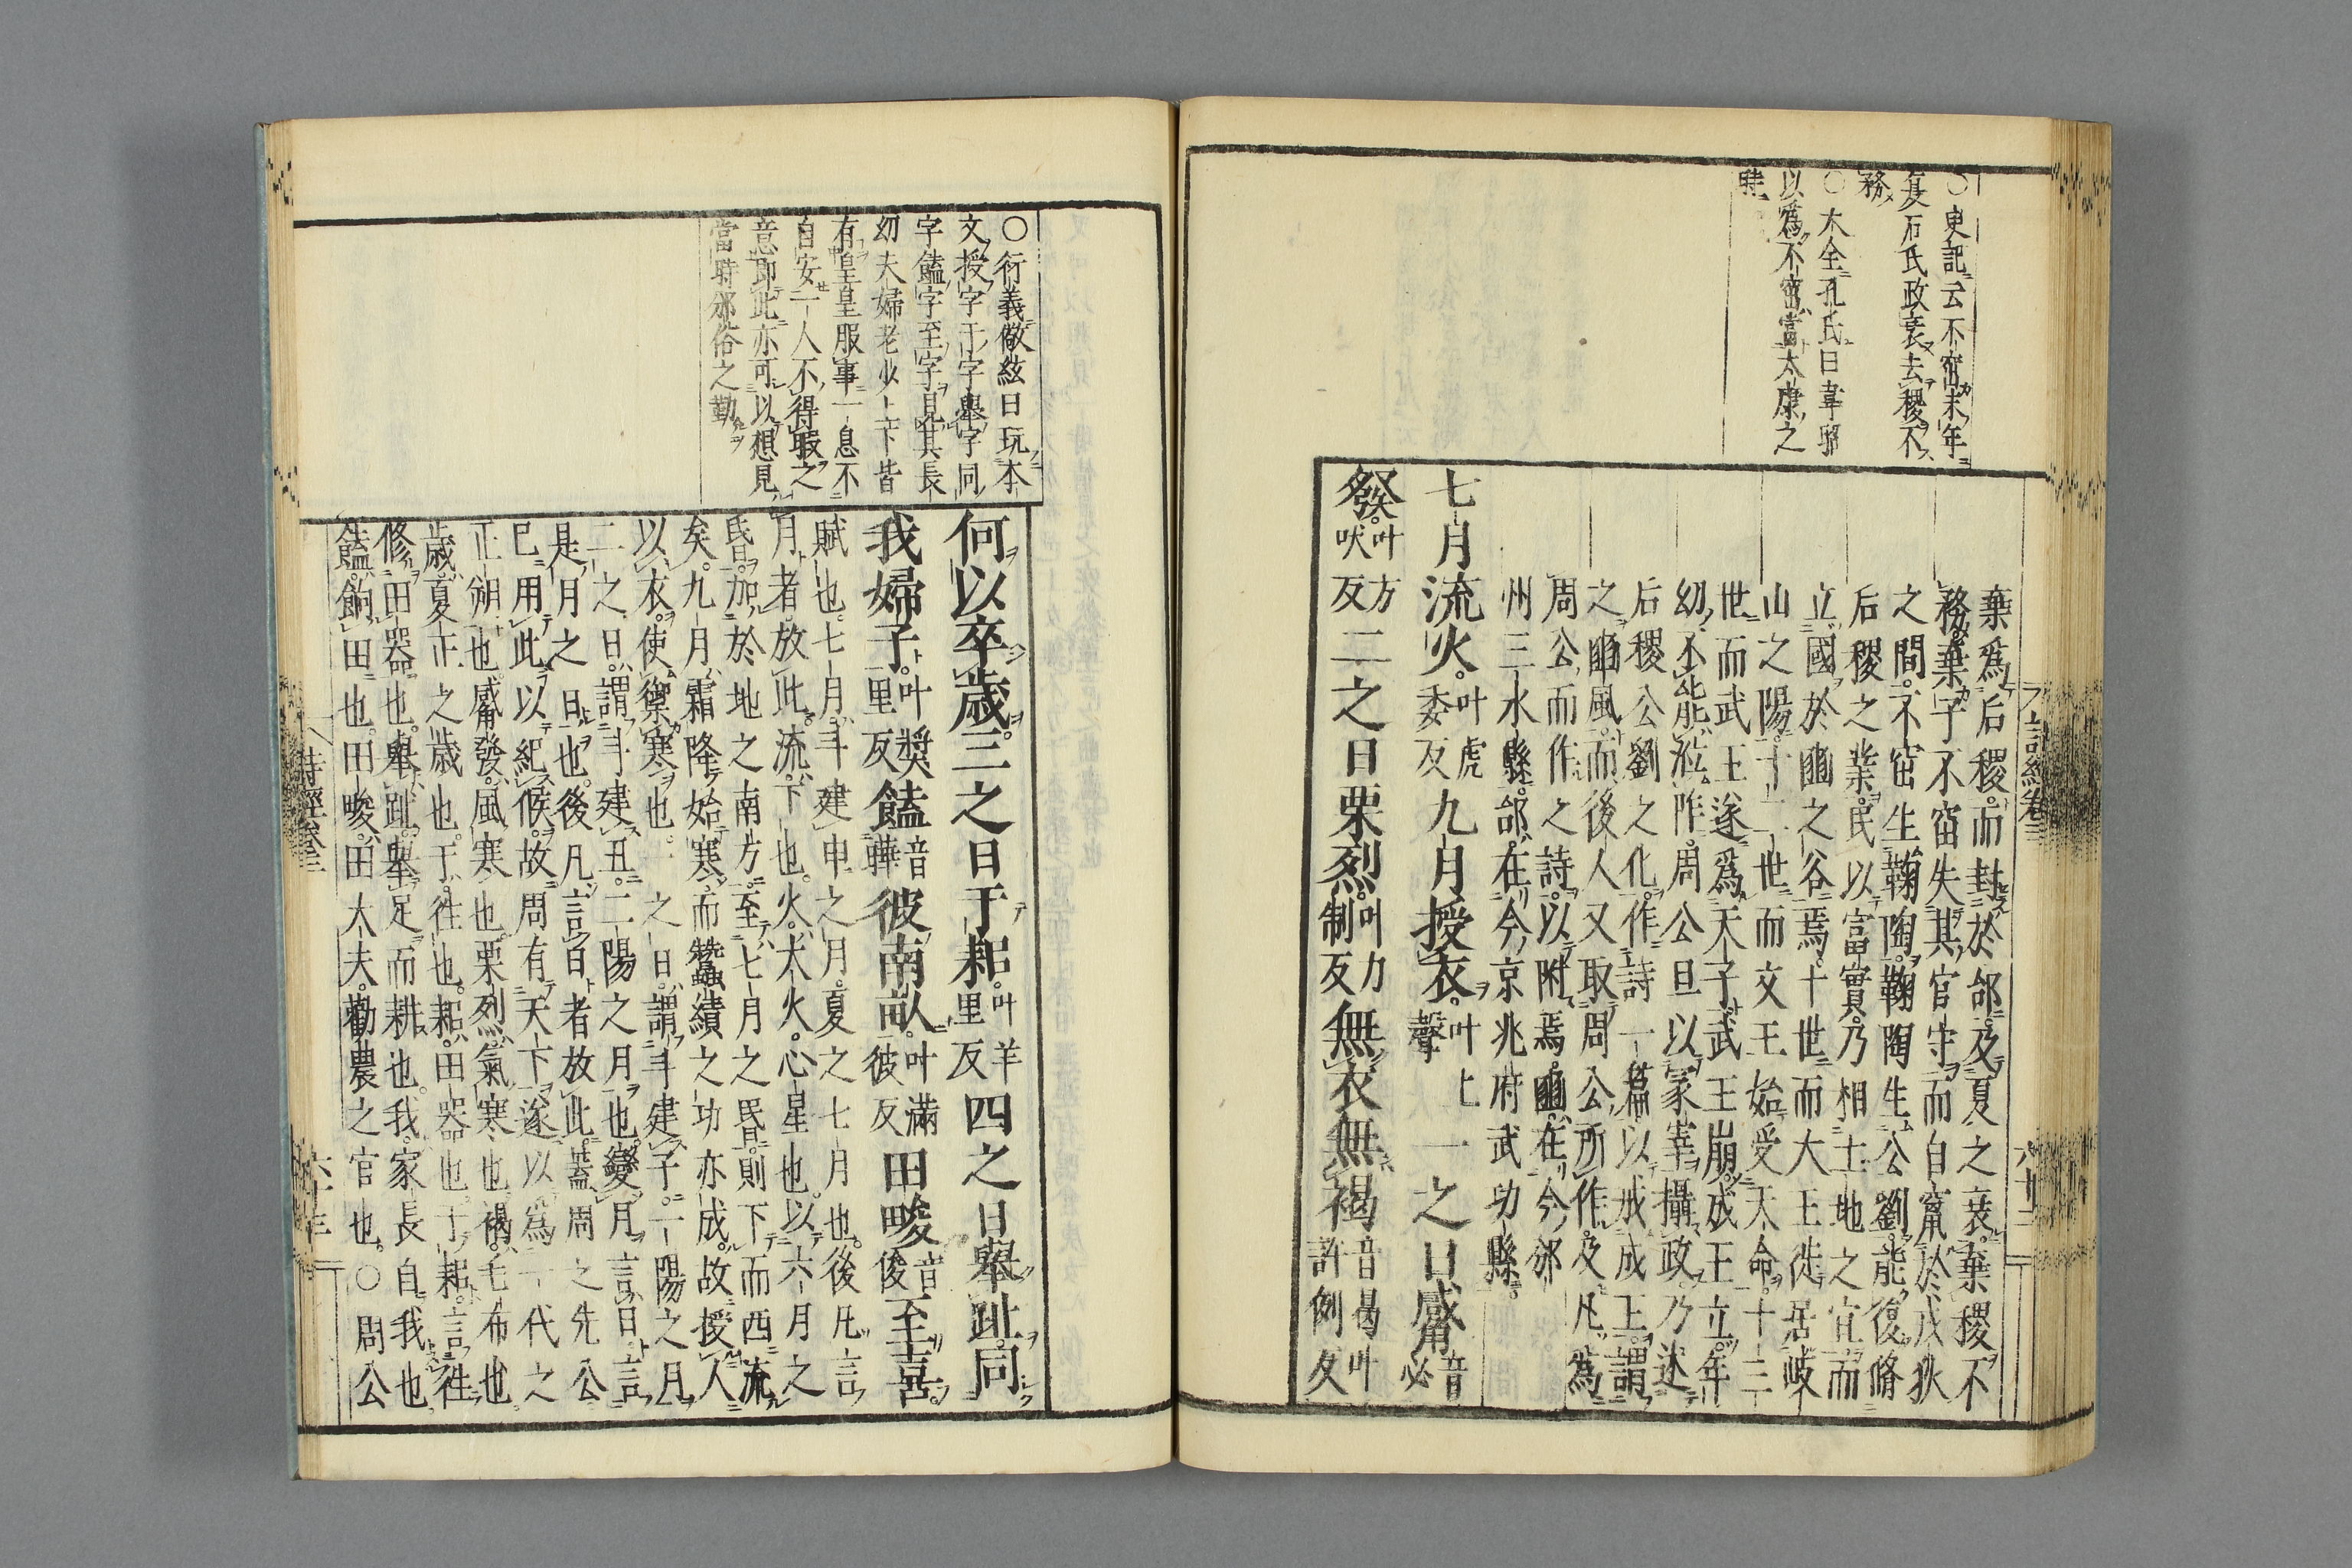 ○史記云不窋末年
夏后氏政衰去稷不
務
○大全孔氏曰韋昭
以爲不窋當太康之
時
棄爲后稷而封於邰及夏之衰棄稷不
務棄子不窋失其官守而自竄於戎狄
之間不窋生鞠陶鞠陶生公劉能復脩
后稷之業民以富實乃相土地之宜而
立國於豳之谷焉十世而大王徙居岐
山之陽十二世而文王始受天命十三
世而武王遂爲天子武王崩成王立年
幼不能涖阼周公旦以冡宰攝政乃述
后稷公劉之化作詩一篇以戒成王謂
之豳風而後人又取周公所作及凡爲
周公而作之詩以附焉豳在今邠
州三水縣邰在今京兆府武功縣
七月流火叶虎委反九月授衣叶上聲一之日觱音必
發叶方吠反二之日栗烈叶力制反無衣無褐音曷叶許例反
○衍義儆絃曰玩本
文授字于字舉字同
字饁字至字見其長
幼夫婦老少上下皆
有皇皇服事一息不
自安一人不得暇之
意即此亦可以想見
當時邠俗之勤
何以卒歲三之日于耜叶羊里反四之日舉趾同
我婦子叶奬里反饁音曄彼南畝叶滿彼反田畯音俊至喜
賦也七月斗建申之月夏之七月也後凡言
月者放此流下也火大火心星也以六月之
昏加於地之南方至七月之昏則下而西流
矣九月霜降始寒而蠶績之功亦成故授人
以衣使禦寒也一之日謂斗建子一陽之月
二之日謂斗建丑二陽之月也變月言日言
是月之日也後凡言日者放此蓋周之先公
已用此以紀候故周有天下遂以爲一代之
正朔也觱發風寒也栗烈氣寒也褐毛布也
歲夏正之歲也于往也耜田器也于耜言往
修田器也舉趾舉足而耕也我家長自我也
饁餉田也田畯田大夫勸農之官也○周公
詩經卷三
六十三